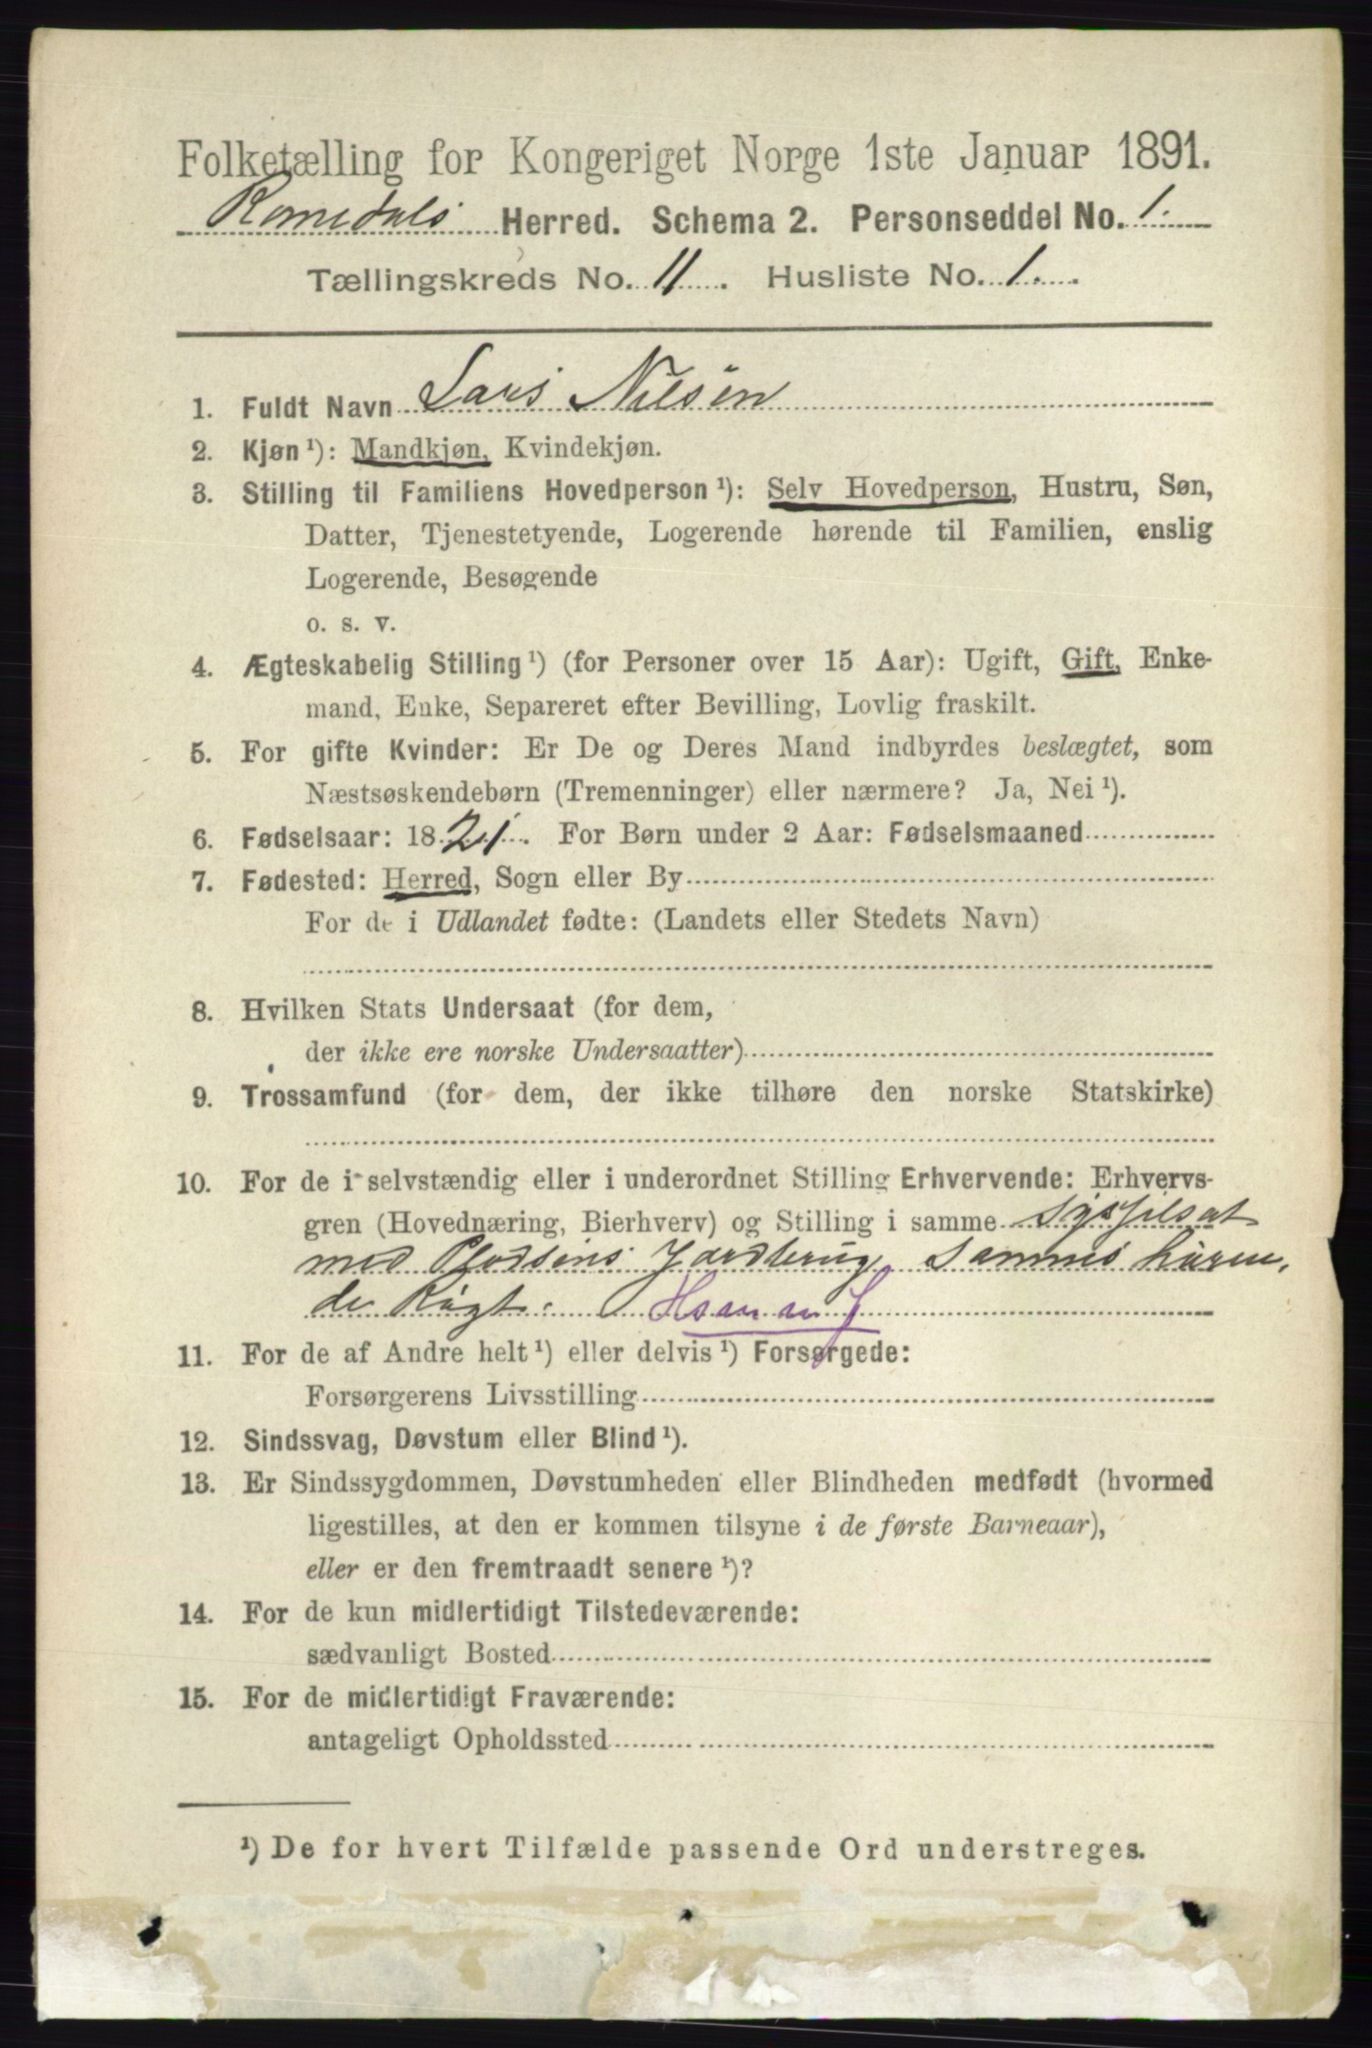 Folketælling for Kongeriget Norge 1ste Januar 1891.
Romedals Herred. Schema 2. Personseddel No. 1.
Tællingskreds No. 11. Husliste No. 1.
1. Fuldt Navn Lars Nilsen
2. Kjøn ¹): Mandkjøn, Kvindekjøn.
3. Stilling til Familiens Hovedperson ¹): Selv Hovedperson, Hustru, Søn,
Datter, Tjenestetyende, Logerende hørende til Familien, enslig
Logerende, Besøgende
o. s. v.
4. Ægteskabelig Stilling ¹) (for Personer over 15 Aar): Ugift, Gift, Enke-
mand, Enke, Separeret efter Bevilling, Lovlig fraskilt.
5. For gifte Kvinder: Er De og Deres Mand indbyrdes beslægtet, som
Næstsøskendebørn (Tremenninger) eller nærmere? Ja, Nei ¹).
6. Fødselsaar: 1821. For Børn under 2 Aar: Fødselsmaaned
7. Fødested: Herred, Sogn eller By
For de i Udlandet fødte: (Landets eller Stedets Navn)
8. Hvilken Stats Undersaat (for dem,
der ikke ere norske Undersaatter)
9. Trossamfund (for dem, der ikke tilhøre den norske Statskirke)
10. For de i selvstændig eller i underordnet Stilling Erhvervende: Erhvervs-
gren (Hovednæring, Bierhverv) og Stilling i samme Sysselsat
med Pladsens Jordbrug Sammes høren-
de Røgt.
11. For de af Andre helt ¹) eller delvis ¹) Forsørgede:
Forsørgerens Livsstilling
12. Sindssvag, Døvstum eller Blind ¹).
13. Er Sindssygdommen, Døvstumheden eller Blindheden medfødt (hvormed
ligestilles, at den er kommen tilsyne i de første Barneaar),
eller er den fremtraadt senere ¹)?
14. For de kun midlertidigt Tilstedeværende:
sædvanligt Bosted
15. For de midlertidigt Fraværende:
antageligt Opholdssted
¹) De for hvert Tilfælde passende Ord understreges.